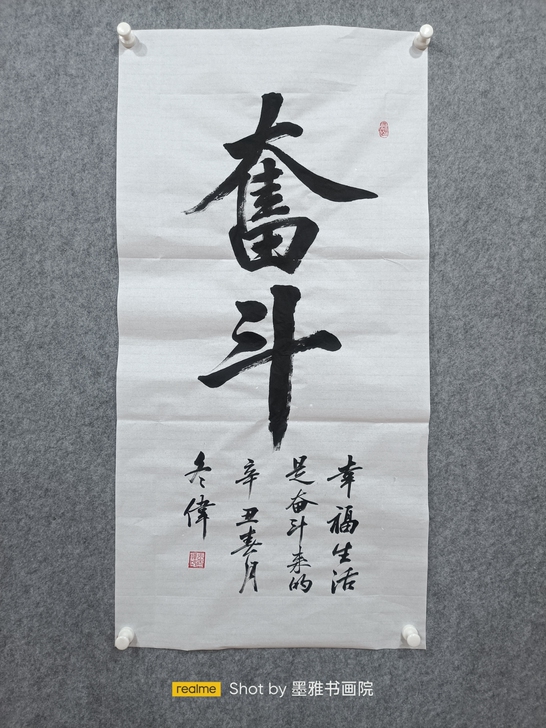 奮
斗
幸福生活
是奋斗来的
辛丑春月
冬偉
realme Shot by 墨雅书画院